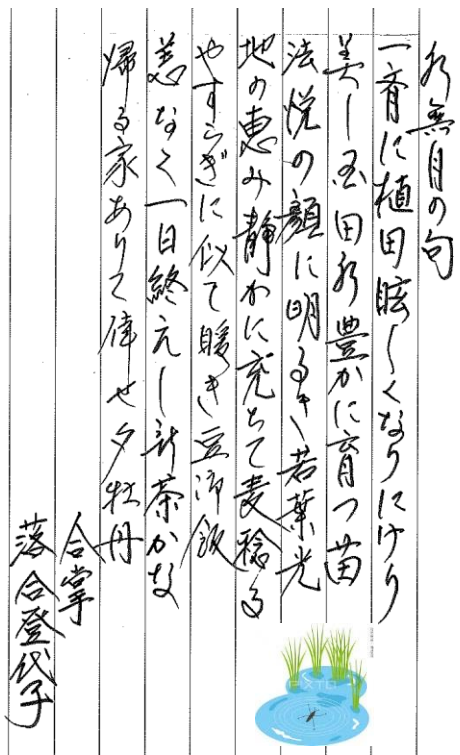 水無月の句
一斉に植田眩しくなりにけり
美し国田水豊かに育つ苗
法悦の顔に明るき若葉光
地の恵み静かに充ちて麦稔る
やすらぎに似て暖き豆御飯
恙なく一日終えし新茶かな
帰る家ありて倖せ夕牡丹
合掌
落合登代子
PIXTA